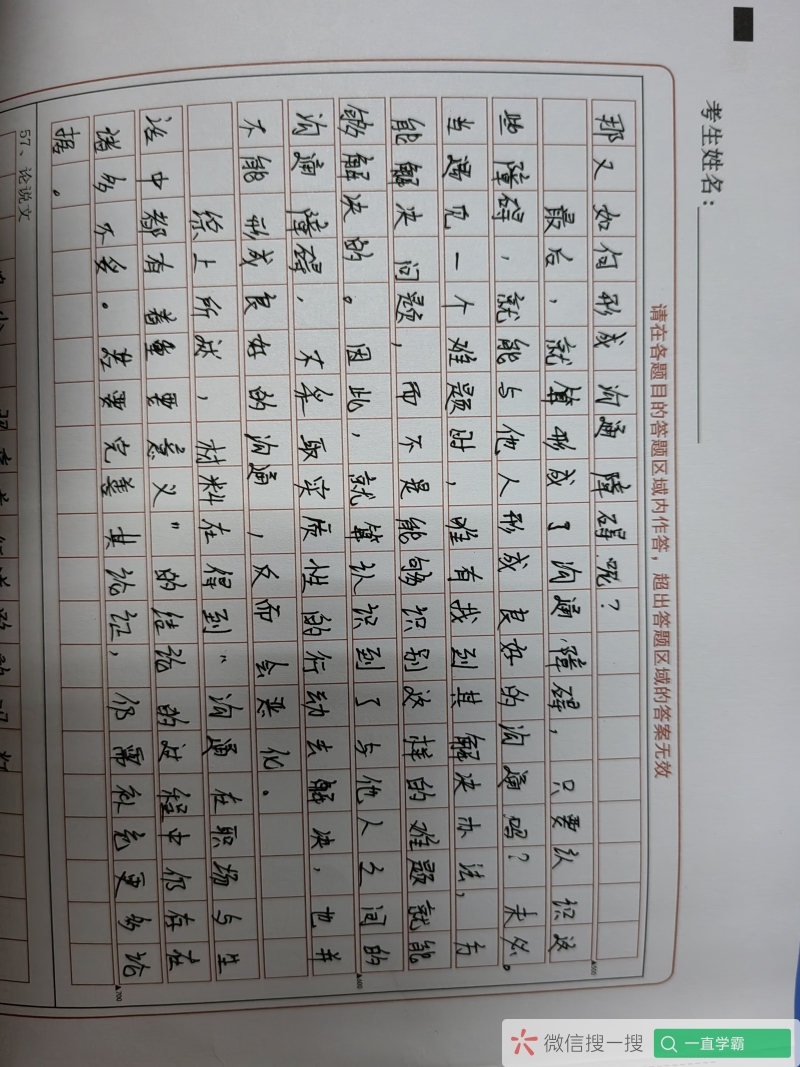 考生姓名：
请在各题目的答题区域内作答，超出答题区域的答案无效
那又如何形成沟通障碍呢？
最后，就算形成了沟通障碍，只要认识这
些障碍，就能与他人形成良好的沟通吗？未必。
当遇见一个难题时，唯有找到其解决办法，方
能解决问题，而不是能够识别这样的难题就能
够解决的。因此，就算认识到了与他人之间的
沟通障碍，不采取实质性的行动去解决，也并
不能形成良好的沟通，反而会恶化。
综上所述，材料在得到“沟通在职场与生
活中都有着重要意义”的结论的过程中仍存在
诸多不妥。若要完善其论证，仍需补充更多论
据。
57、论说文
▲500
▲600
▲700
微信搜一搜
一直学霸